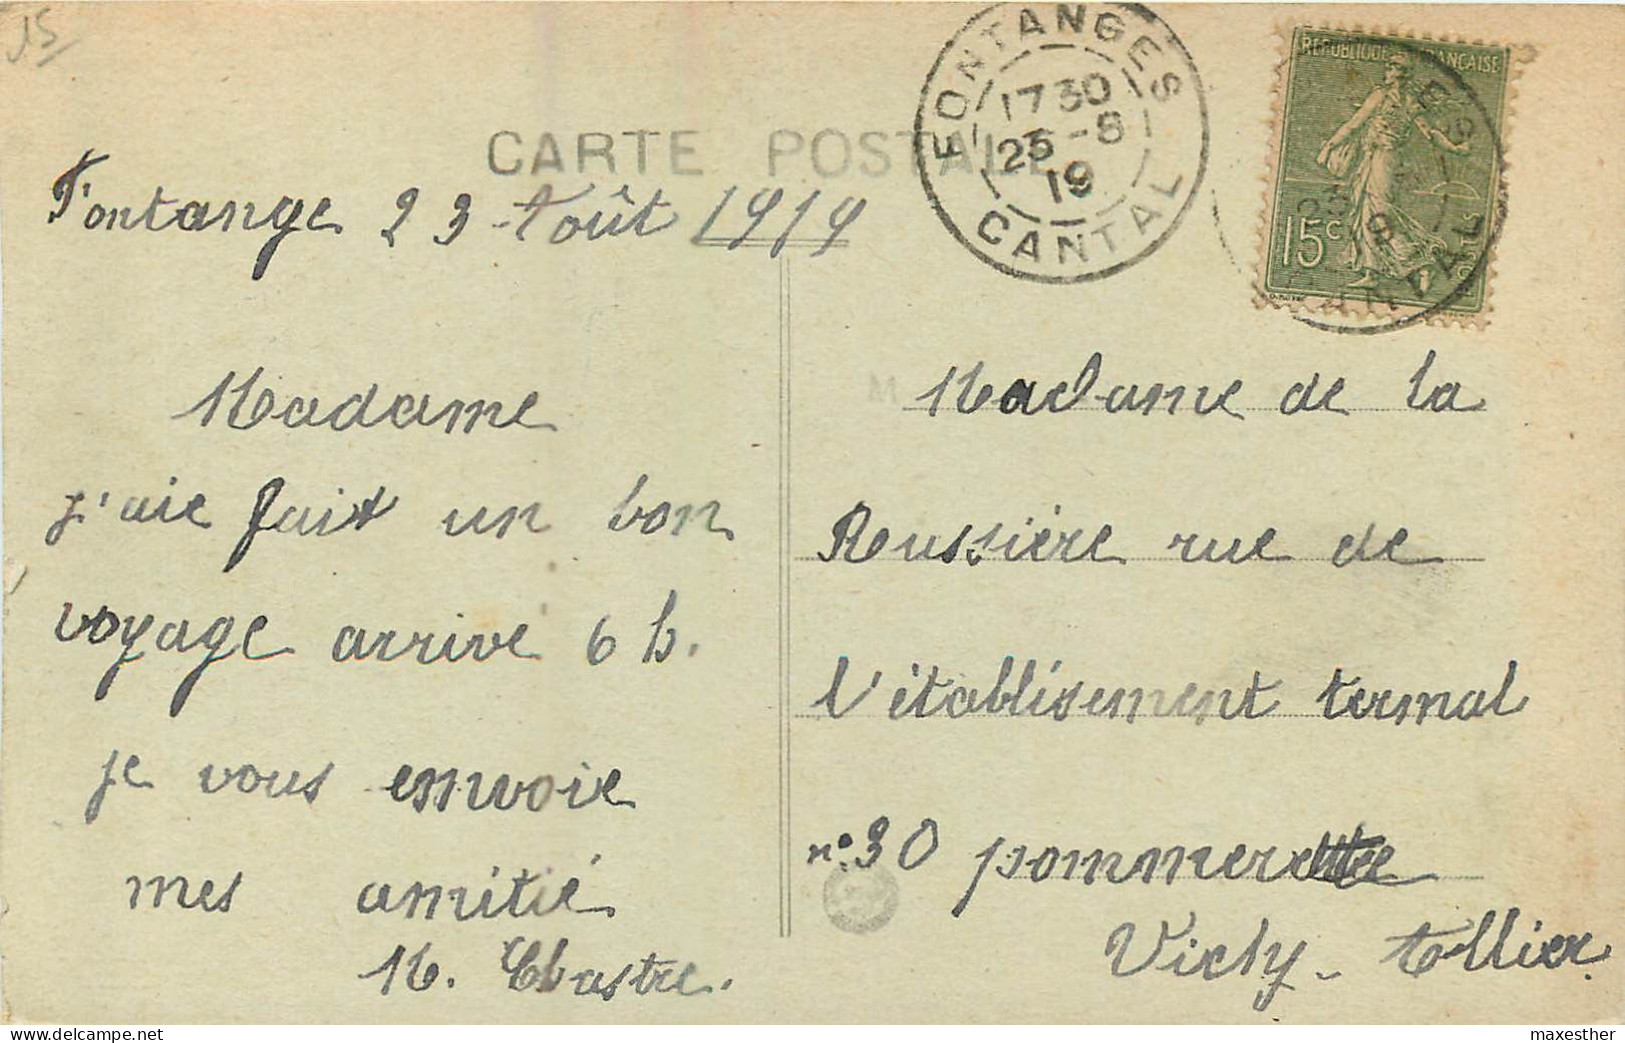 15
CARTE POSTALE
FONTANGES
1730
23 - 8
19
CANTAL
REPUBLIQUE FRANÇAISE
15c
POSTES
Fontange 23 Août 1919
Madame
j'aie fait un bon
voyage arrive 6 h.
je vous emvoie
mes amitié
M. Chastre.
Madame de la
Roussière rue de
l'établisement termal
n° 30 pommer
Vichy - Allier.
maxesther